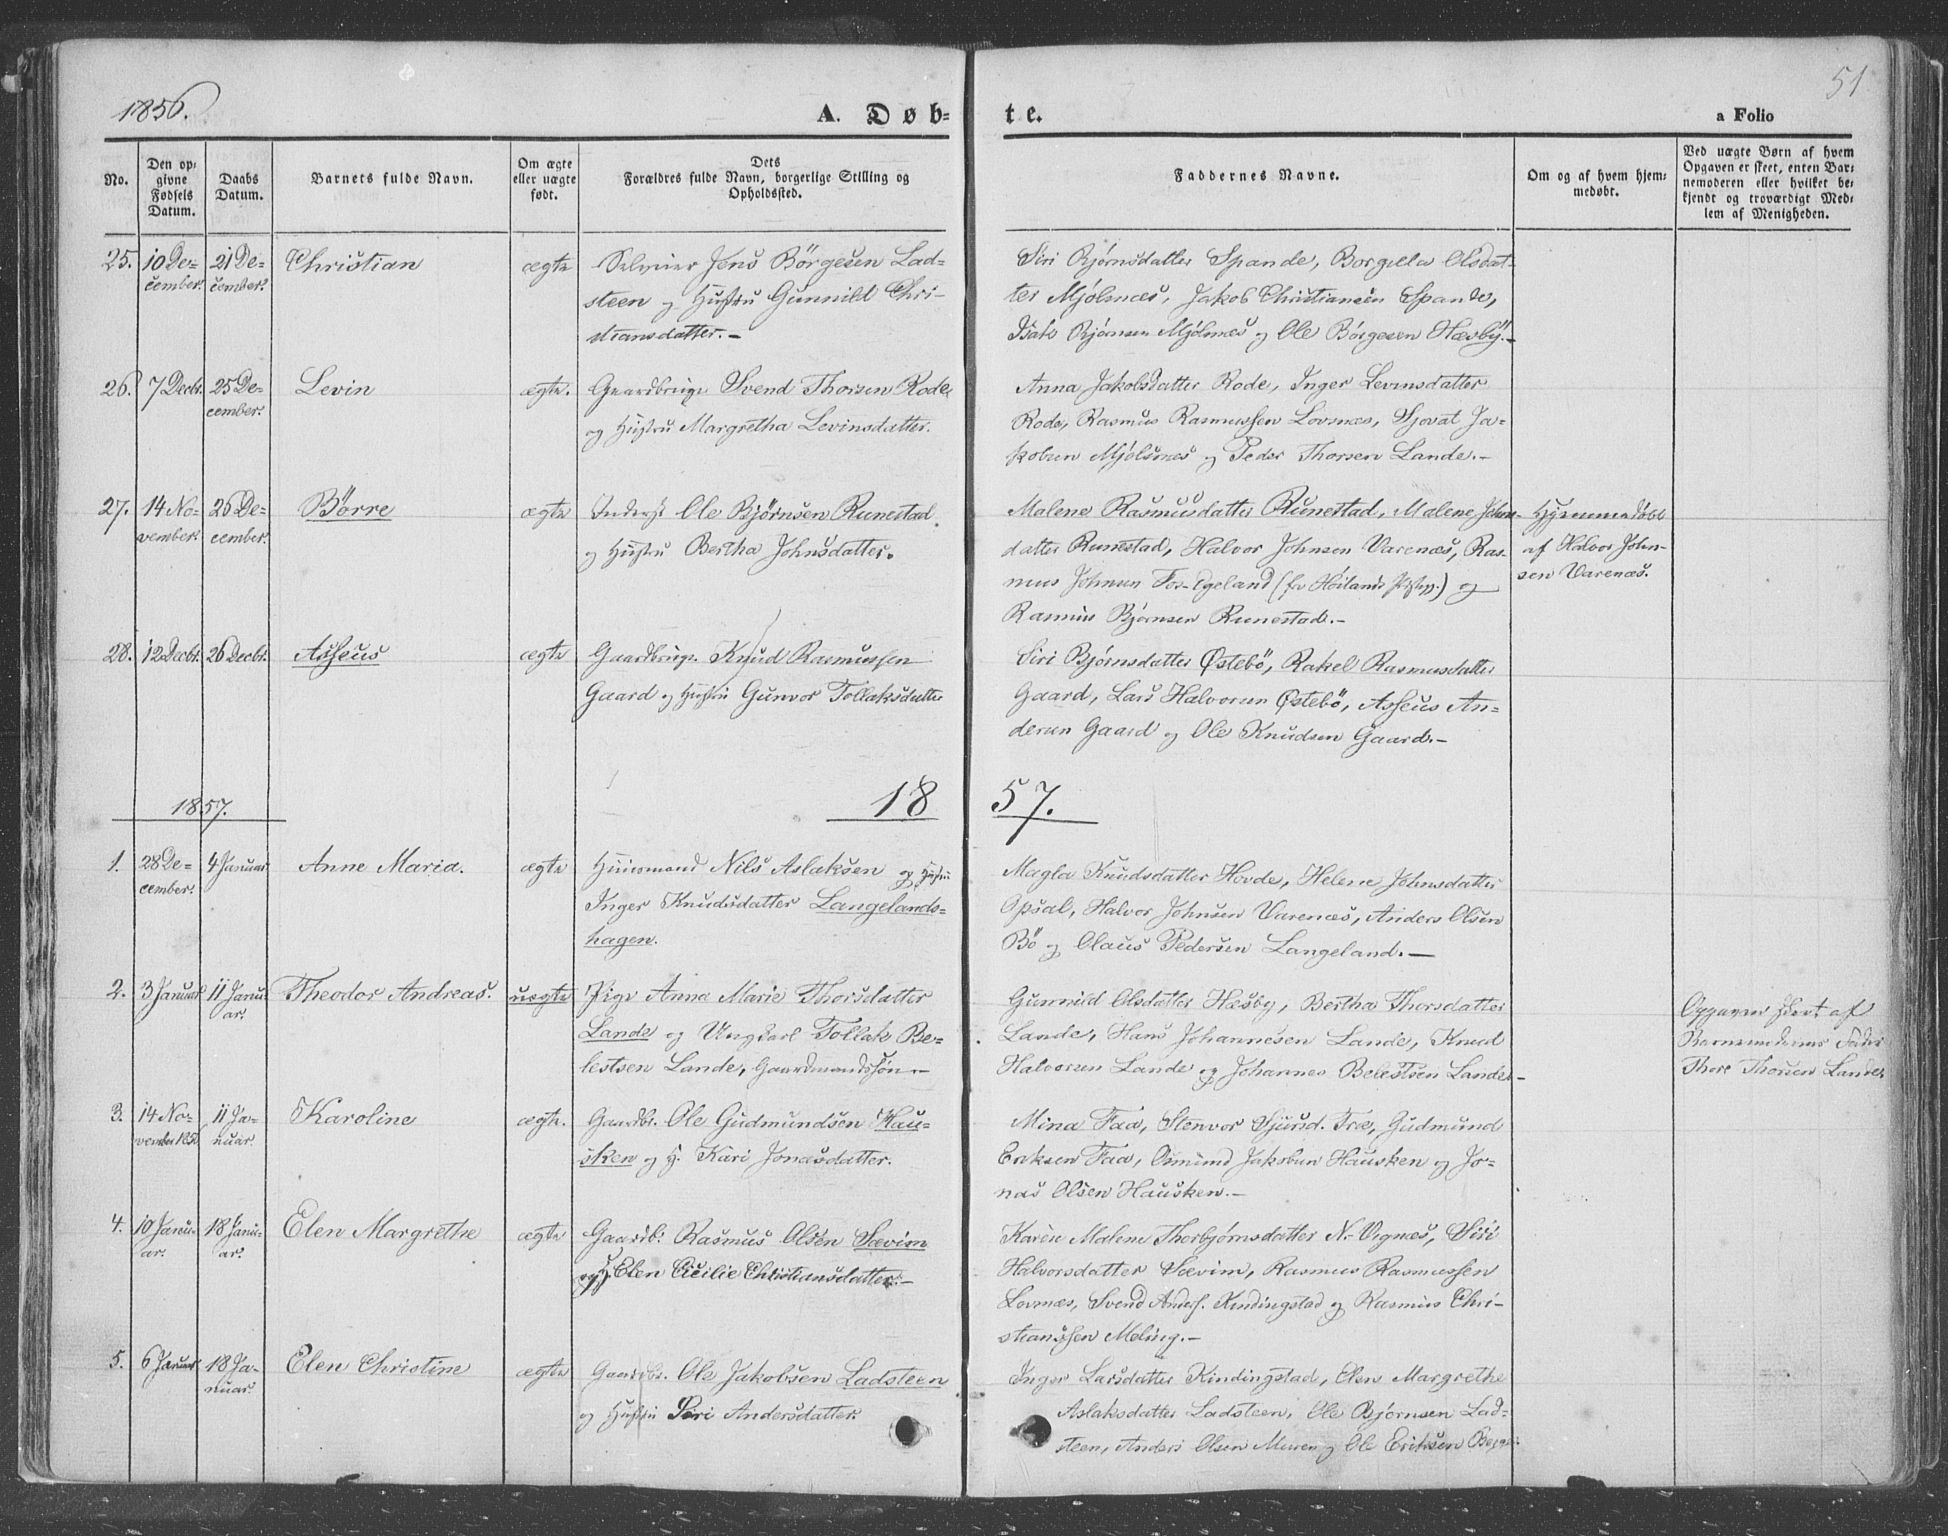 1856.
A. Døb-
te.
51
a Folio
No.
Den op-
givne
Fødsels
Datum.
Daabs
Datum.
Barnets fulde Navn.
Om ægte
eller uægte
født.
Dets
Forældres fulde Navn, borgerlige Stilling og
Opholdssted.
Faddernes Navne.
Om og af hvem hjem-
medøbt.
Ved uægte Børn af hvem
Opgaven er skeet, enten Bar-
nemoderen eller hvilket be-
kjendt og troværdigt Med-
lem af Menigheden.
25. 10 De-
cember.
21 De-
cember.
Christian
ægte
Jens Börgesen Lad-
steen og Hustru Gunnild Chri-
stiansdatter.-
Siri Bjørnsdatter Spande, Borgilla Olsdat-
ter Mjølsnæs, Jakob Christiansen Spande,
Isak Bjørnsen Mjølsnæs og Ole Börgesen Hæsbÿ.-
26. 7 Decbr.
25 De-
cember.
Levin
ægte.
Gaardbruge Svend Thorsen Rode
og Hustru Margretha Levinsdatter.
Anna Jakobsdatter Rode, Inger Levinsdatter
Rode, Rasmus Rasmussen Lovsnæs, Sjovat Ja-
kobsen Mjølsnæs og Peder Thorsen Lande.-
27. 14 No-
vember.
26 De-
cember.
Børre
ægte
Inderst Ole Bjørnsen Runestad
og Hustru Bertha Johnsdatter.
Malene Rasmusdatter Runestad, Malene Johns-
datter Runestad, Halvor Johnsen Varenæs, Ras-
mus Johnsen Fos-Egeland (fr Høilands Pr) og
Rasmus Bjørnsen Runestad.-
Hjemmedøbt
af Halvor John-
sen Varenæs.
28. 12 Decbr. 26 Decbr.
Asseus
ægte
Gaardbrug. Knud Rasmussen
Gaard og Hustru Gunvor Tollaksdatter
Siri Bjørnsdatter Østebö, Rakel Rasmusdatter
Gaard, Lars Halvorsen Østebö, Asseus An-
dersen Gaard og Ole Knudsen Gaard.-
1857.
18 57.
1. 28 De-
cember.
4 Januar
Anne Maria.
ægte
Huusmand Nils Aslaksen og Hustru
Inger Knudsdatter Langelands-
hagen.
Magla Knudsdatter Hovde, Helene Johnsdatter
Opsal, Halvor Johnsen Varenæs, Anders Olsen
Bö og Olaus Pedersen Langeland.-
2. 3 Januar
11 Janu-
ar.
Theodor Andreas.
uægte
Pige Anna Marie Thorsdatter
Lande og Ungkarl Tollak Be-
lestsen Lande, Gaardmandssøn.-
Gunnild Olsdatter Hæsby, Bertha Thorsdatter
Lande, Hans Johannesen Lande, Knud
Halvorsen Lande og Johannes Belestsen Lande.-
Opgaven skeet af
Barnemoderens Fader
Thore Thorsen Lande.
3. 14 No-
vember 1856
11 Ja-
nuar.
Karoline
ægte.
Gaardbr. Ole Gudmundsen Hau-
sken og H. Kari Jonasdatter.
Mina Faa, Stenvor Sjursd. Træ, Gudmund
Eriksen Faa, Osmund Jakobsen Hausken og Jo-
nas Olsen Hausken.-
4. 10 Janu-
ar.
18 Janu-
ar.
Elen Margrethe
ægte
Gaardb. Rasmus Olsen Sævim
og H. Elen Cicilie Christiansdatter.-
Karen Malene Thorbjørnsdatter N. Vignæs, Siri
Halvorsdatter Sævim, Rasmus Rasmussen
Lovnæs, Svend Anders. Kindingstad og Rasmus Chri-
stianssen Meling.-
5. 6 Januar
18 Ja-
nuar.
Elen Christine
ægte
Gaardbr. Ole Jakobsen Ladsteen
og Hustru Siri Andersdatter.
Inger Larsdatter Kindingstad, Elen Margrethe
Aslaksdatter Ladsteen, Ole Bjørnsen Lad-
steen, Anders Olsen Meren og Ole Eriksen